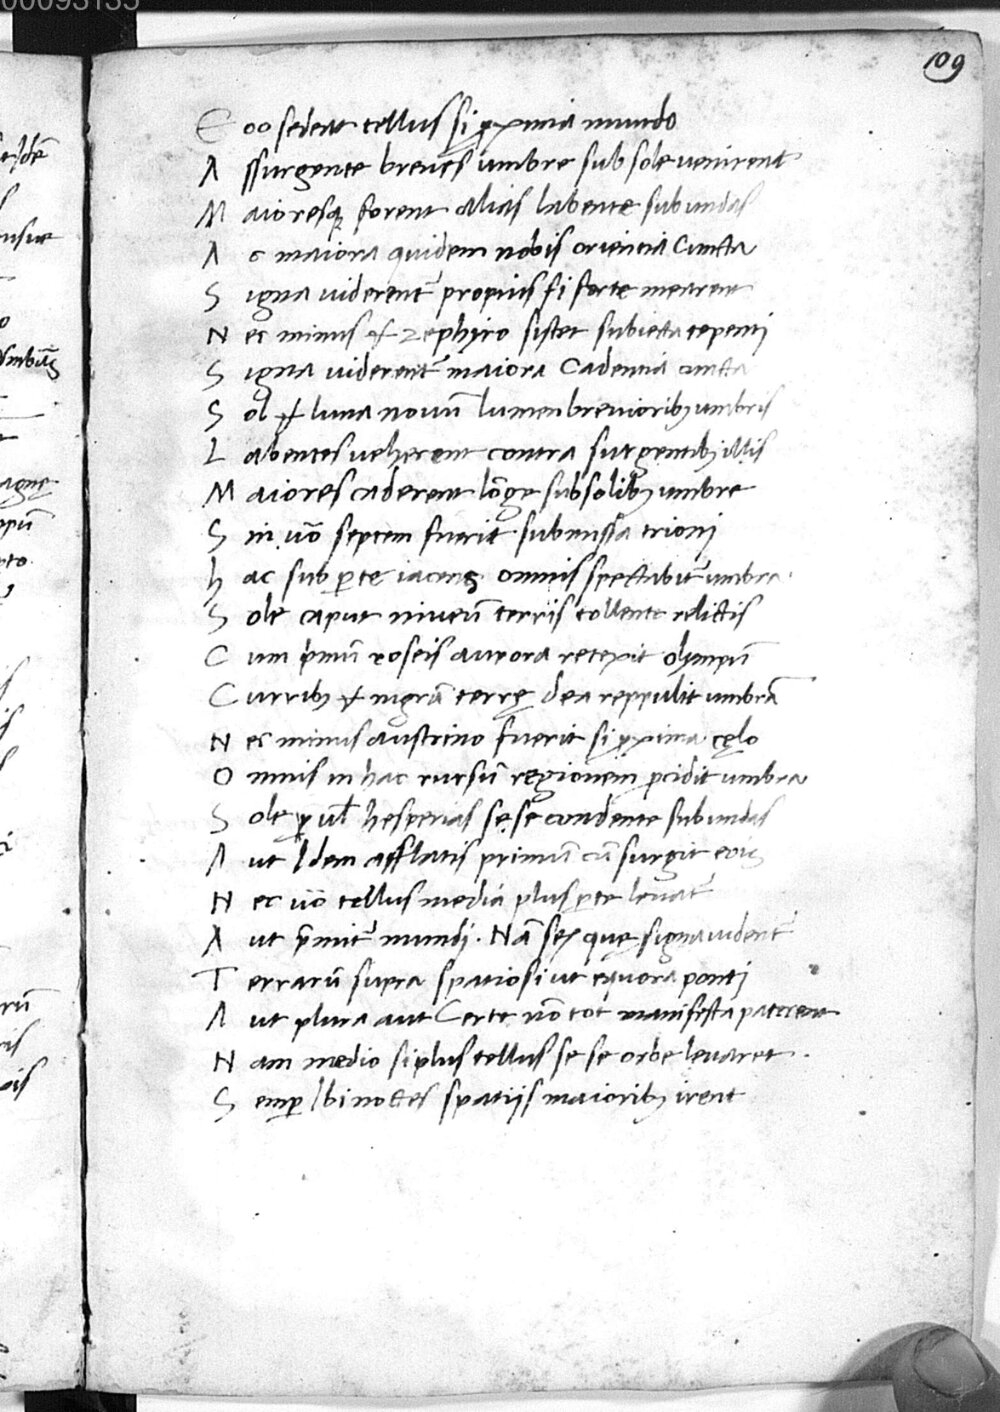 00093135
109
Eoo sedeat tellus si ꝓxima mundo
Assurgente breues umbre sub sole uenirent
Maioresq; forent alias labente sub undas
Ac maiora quidem nobis orientia Cuncta
Signa uiderent᷑ propius si forte mearent
Nec minus & zephyro sistet subiecta tepenti
Signa uiderent᷑ maiora Cadentia cuncta
Sol & luna nouū lumen breuiorib; umbris
Labentes ueherent contra surgentib; illis
Maiores caderent lōge sub solib; umbre
Sin uō septem fuerit submissa trioni
hac sub ꝑte iacens omnis spectabit᷑ umbra.
Sole caput niueū terris tollente relictis
Cum pͥmū roseis aurora retexit olympū
Currib; & nigrā terrę dea reppulit umbrā
Nec minus austrino fuerit si ꝓxima cęlo
Omnis in hac rursū regionem ꝓcidit umbra
Sole ꝓcul hesperias sese condente sub undas
Aut Idem afflatis primū cū surgit eois
Nec uō tellus media plus ꝑte leuat᷑
Aut p̄mit᷑ mundi. Nā sex quę signa uident᷑
Terrarū supra spatiosi ut equora ponti
Aut plura aut Certe nō tot manifesta paterent
Nam medio si plus tellus se se orbe leuaret.
Semꝑ Ibi noctes spatiis maiorib; irent